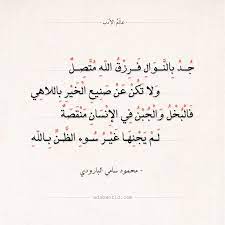 عالم الأدب
جُدْ بِالنَّوَالِ فَرِزْقُ اللهِ مُتَّصِلٌ
وَلا تَكُنْ عَنْ صَنِيعِ الْخَيْرِ بِاللاهِي
فَالْبُخْلُ وَالْجُبْنُ فِي الإِنْسَانِ مَنْقَصَةٌ
لَمْ يَجْنِهَا غَيْرُ سُوءِ الظَّنِّ بِاللهِ
- محمود سامي البارودي -
adabworld.com